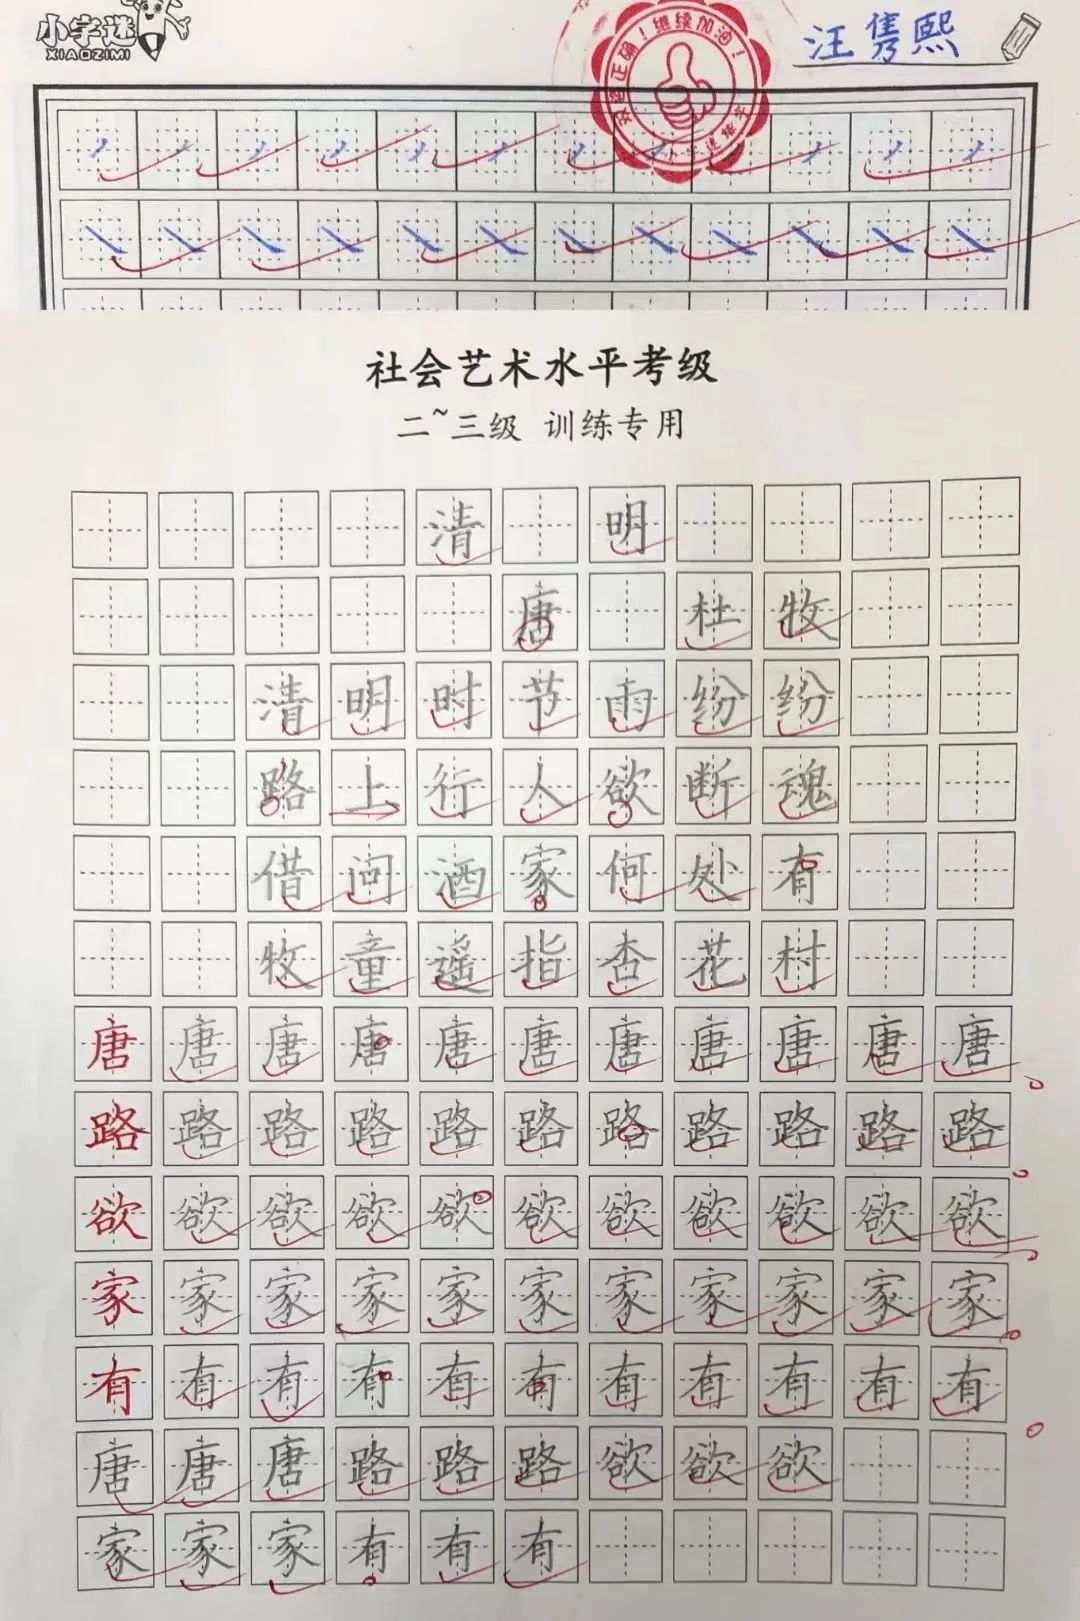 小字迷
XIAOZIMI
继续加油！
汪隽熙
社会艺术水平考级
二~三级 训练专用
清 明
唐 杜牧
清明时节雨纷纷
路上行人欲断魂
借问酒家何处有
牧童遥指杏花村
唐唐唐唐唐唐唐唐唐唐唐
路路路路路路路路路路路
欲欲欲欲欲欲欲欲欲欲欲
家家家家家家家家家家家
有有有有有有有有有有有
唐唐唐路路路欲欲欲
家家家有有有